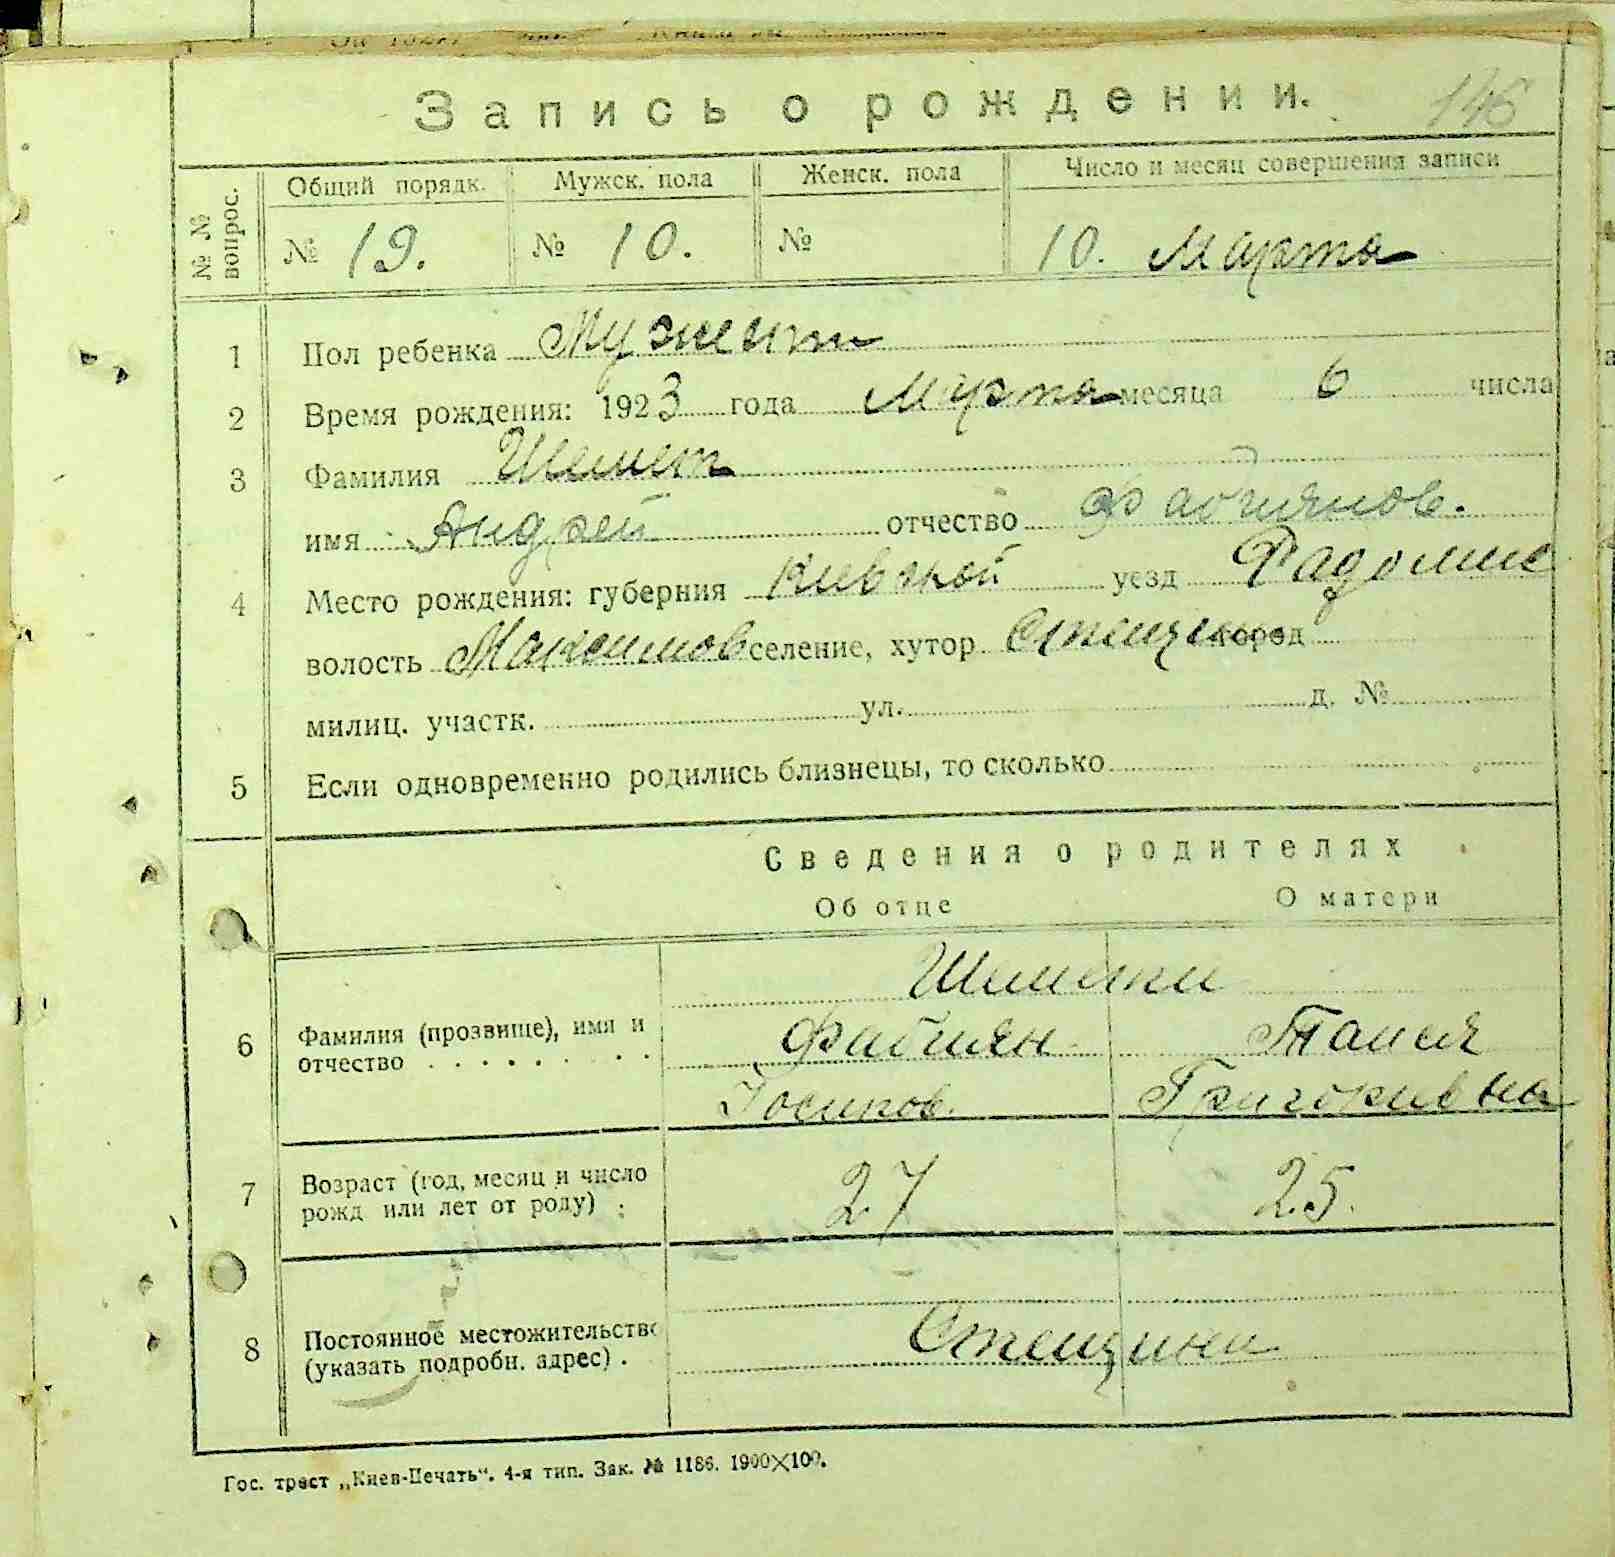 Запись о рождении. 146
№№ вопрос. Общий порядк. Мужск. пола Женск. пола Число и месяц совершения записи
№ 19. № 10. № 10. Марта
1 Пол ребенка Мужеск
2 Время рождения: 1923 года Марта месяца 6 числа
3 Фамилия Шемет
имя Андрей отчество Фабиянов.
4 Место рождения: губерния Киевской уезд Радомис
волость Максимов селение, хутор Стещина город
милиц. участк. ул. д. №
5 Если одновременно родились близнецы, то сколько
Сведения о родителях
Об отце О матери
Шемети
6 Фамилия (прозвище), имя и отчество Фабиян Таися
Иосипов. Григориевна
7 Возраст (год, месяц и число рожд или лет от роду) 27 25.
8 Постоянное местожительство (указать подробн. адрес) . Стещина
Гос. трест „Киев-Печать“. 4-я тип. Зак. № 1186. 1900×100.